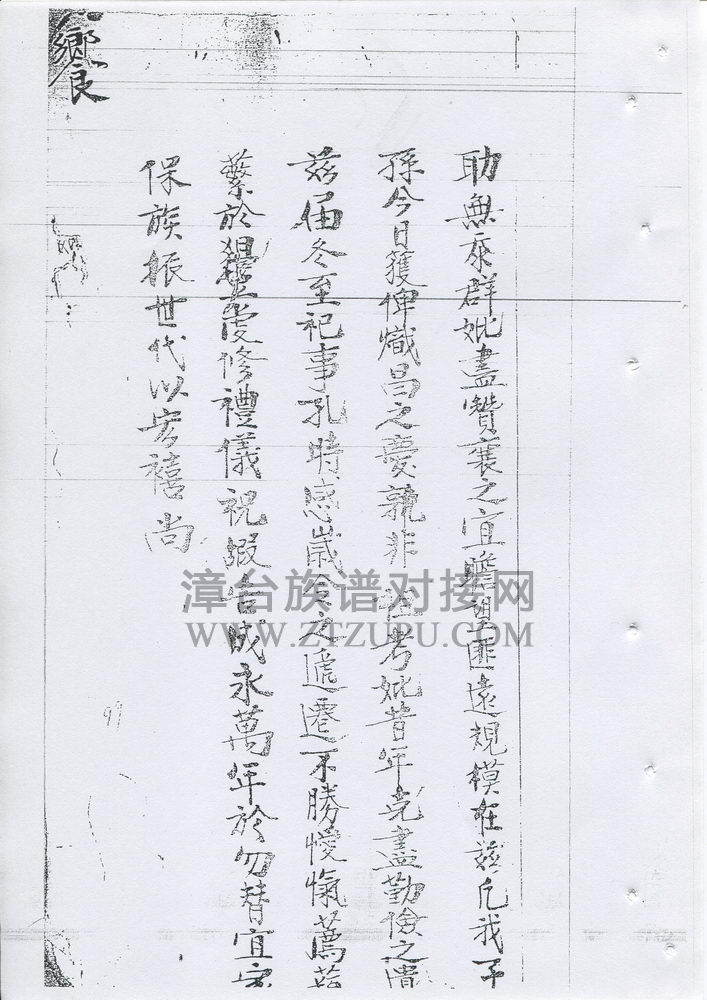 助無忝群妣盡贊襄之宜瞻望匪遠規模在茲凡我子
孫今日獲俾熾昌之慶孰非 祖考妣昔年克盡勤儉之
茲屆冬至祀事孔時感歲令之遞遷不勝愾薦茲
蘩於修禮儀祝嘏告成永萬年於勿替宜家
保族振世代以宏禧尚
饗
99
漳台族谱对接网
WWW.ZTZUPU.COM